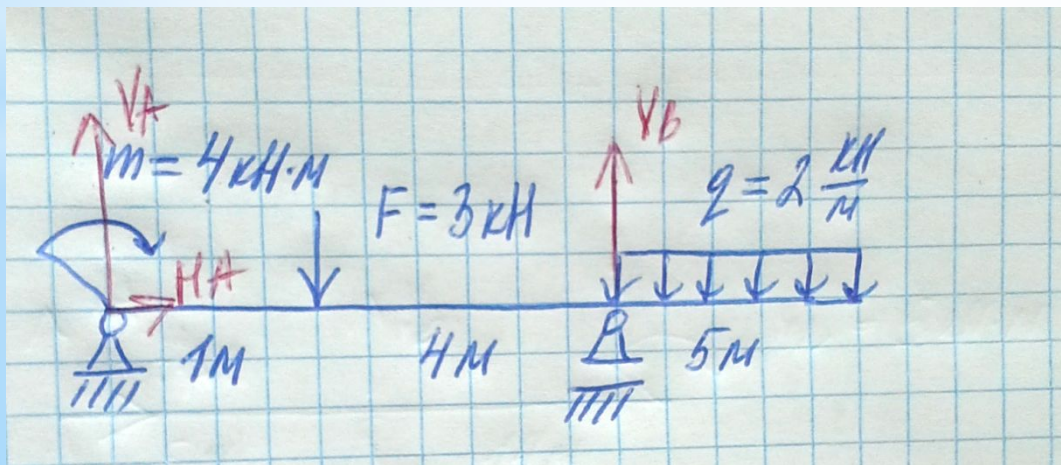 VA
m = 4 кН·м
F = 3 кН
VB
q = 2 кН/м
HA
1м
4м
5м